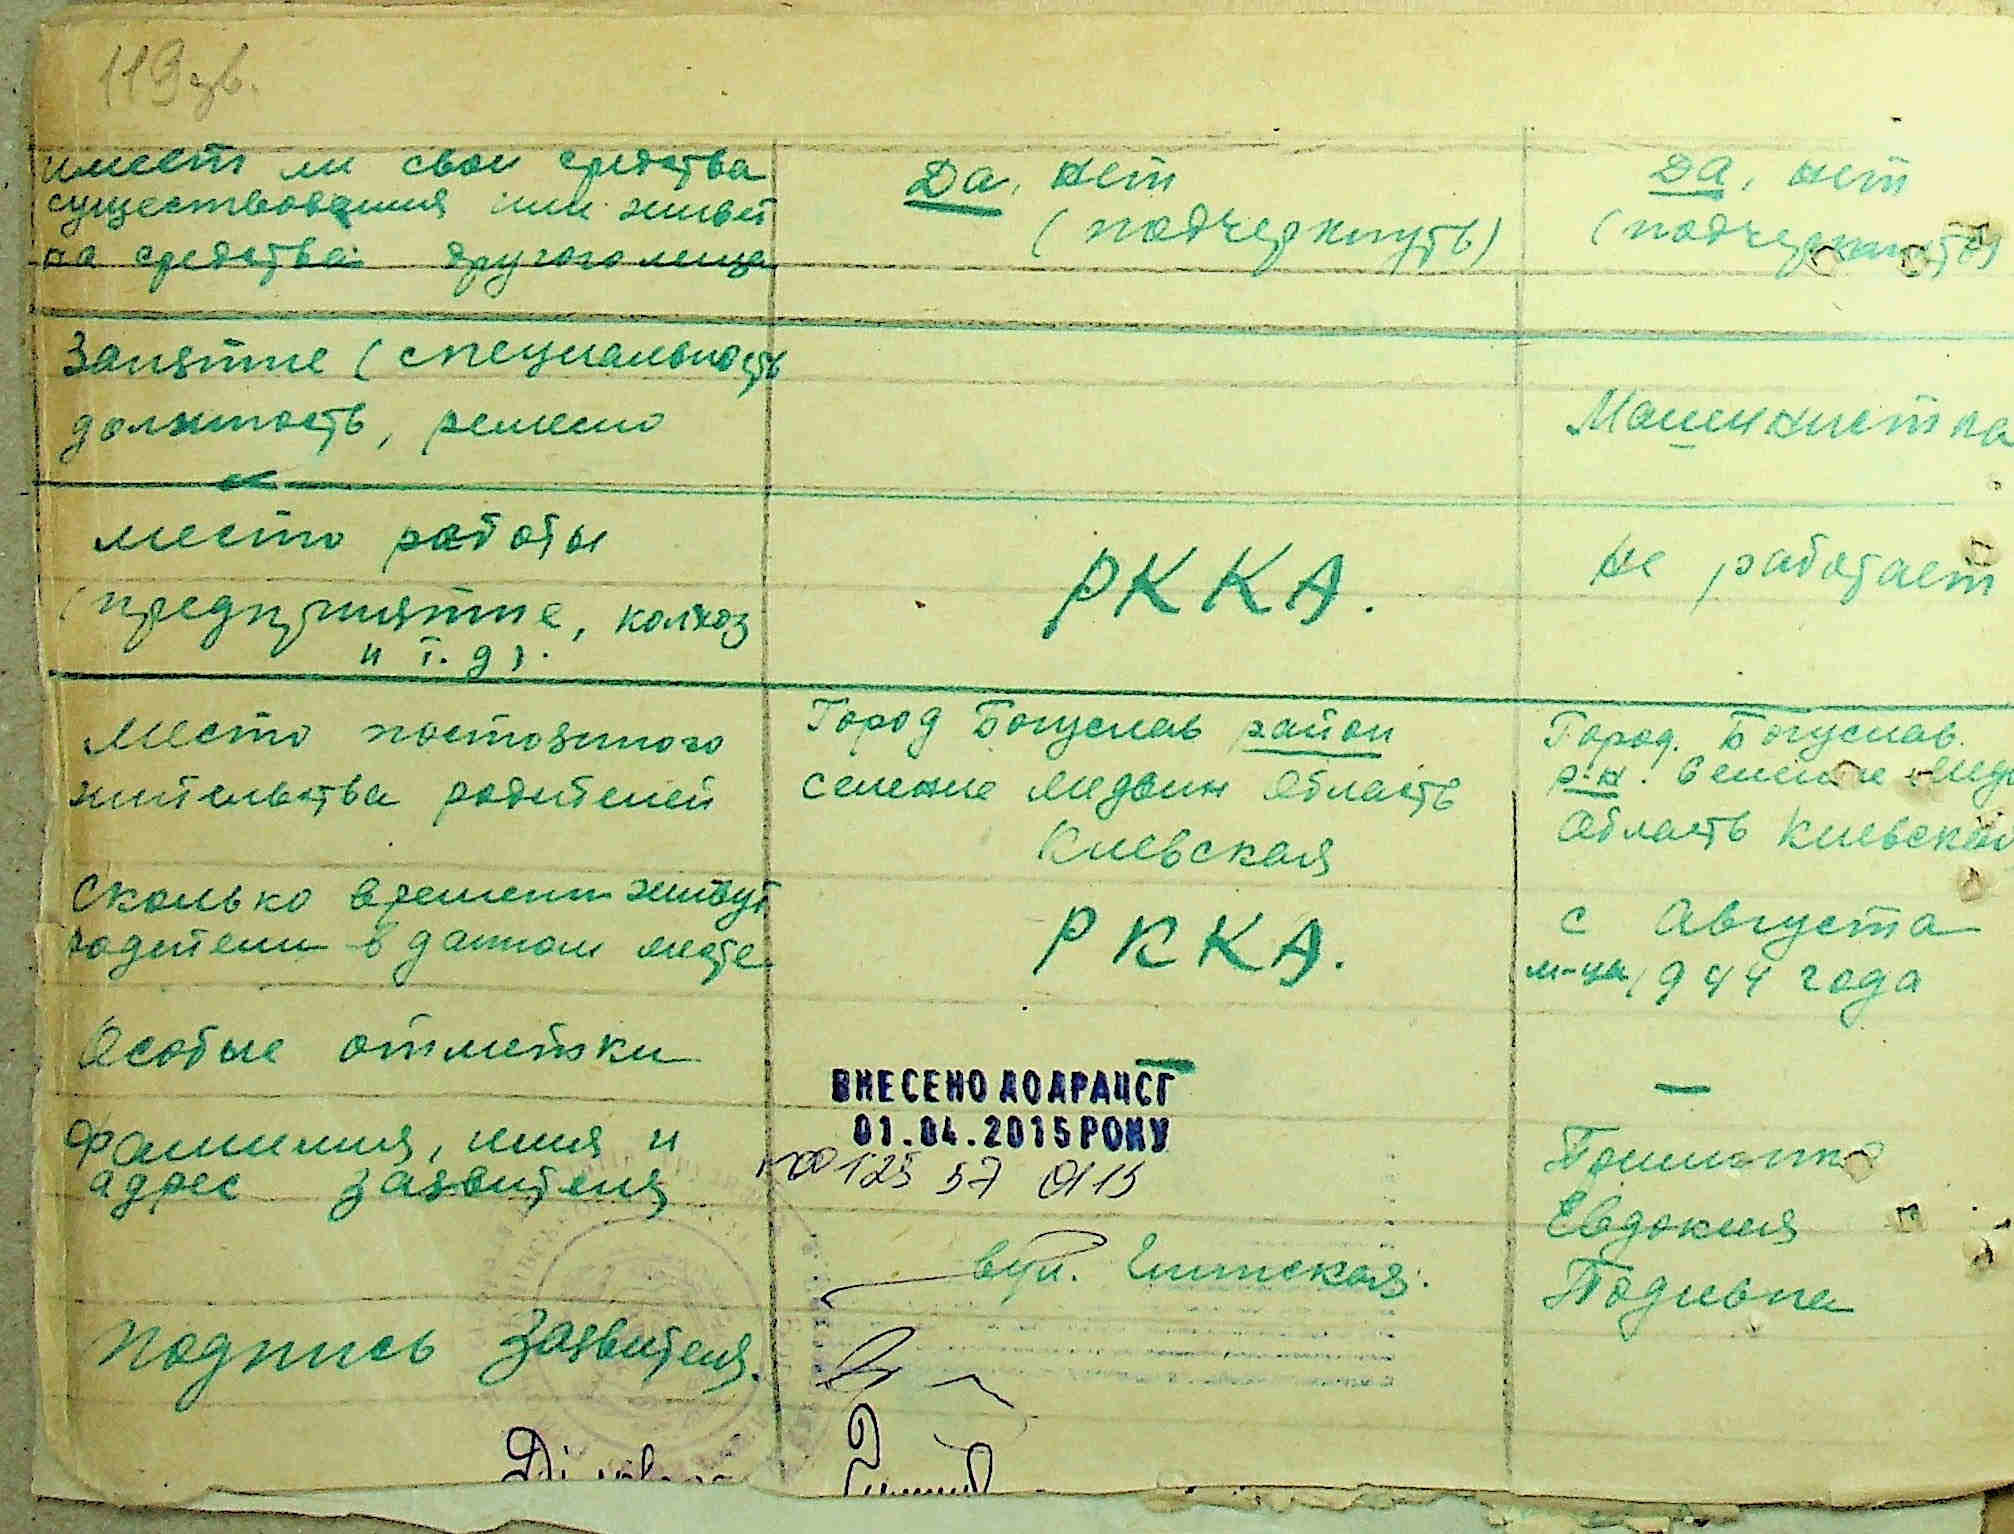 119 зв.
имеет ли свои средства
существования или живет
на средства другого лица
Да, нет
(подчеркнуть)
Да, нет
(подчеркнуть)
Занятие (специальность
должность, ремесло
Машинистка
место работы
(предприятие, колхоз
и т. д).
РККА.
не работает
Место постоянного
жительства родителей
Город Богуслав район
селение Медвин область
Киевская
Город. Богуслав.
р-н. селение Медв
область Киевская
Сколько времени живут
родители в данном месте
РККА.
с Августа
м-ца 1944 года
Особые отметки
—
—
Фамилия, имя и
адрес заявителя
ВНЕСЕНО ДО ДРАЦСГ
01.04.2015 РОКУ
№00125 57 0115
вул.
Евдокия
Подпись заявителя.